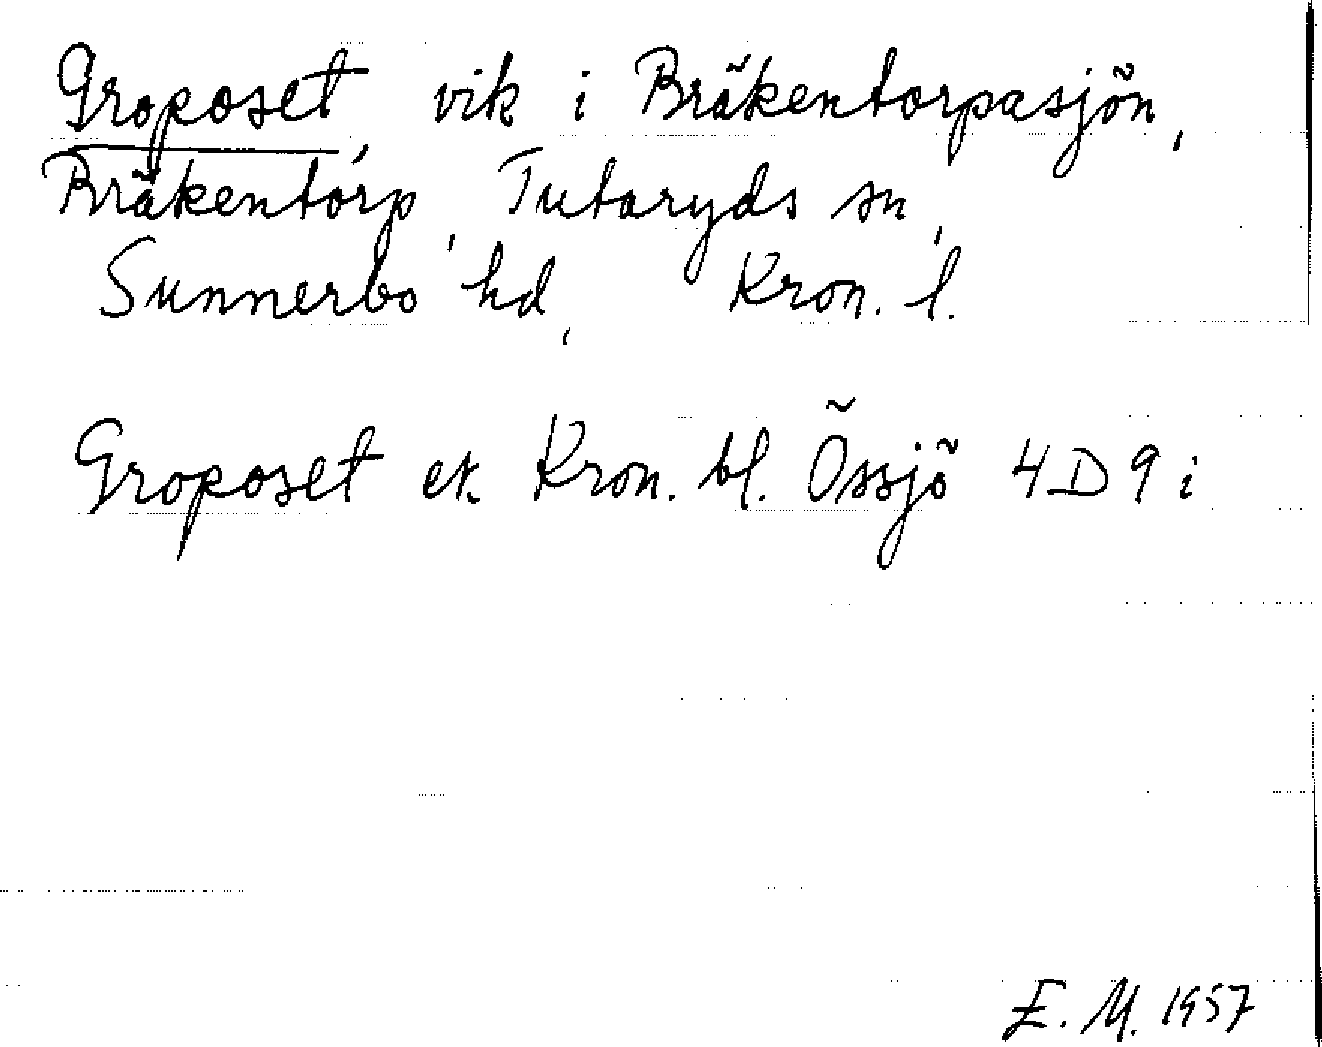 Groposet, vik i Bräkentorpasjön,
Bräkentorp, Tutaryds sn,
Sunnerbo hd, Kron. l.
Groposet ek. Kron. bl. Össjö 4D9i
E. M. 1957